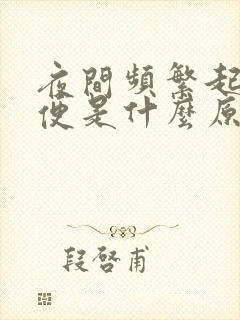 夜間頻繁起
便是什麼原
段啓甫